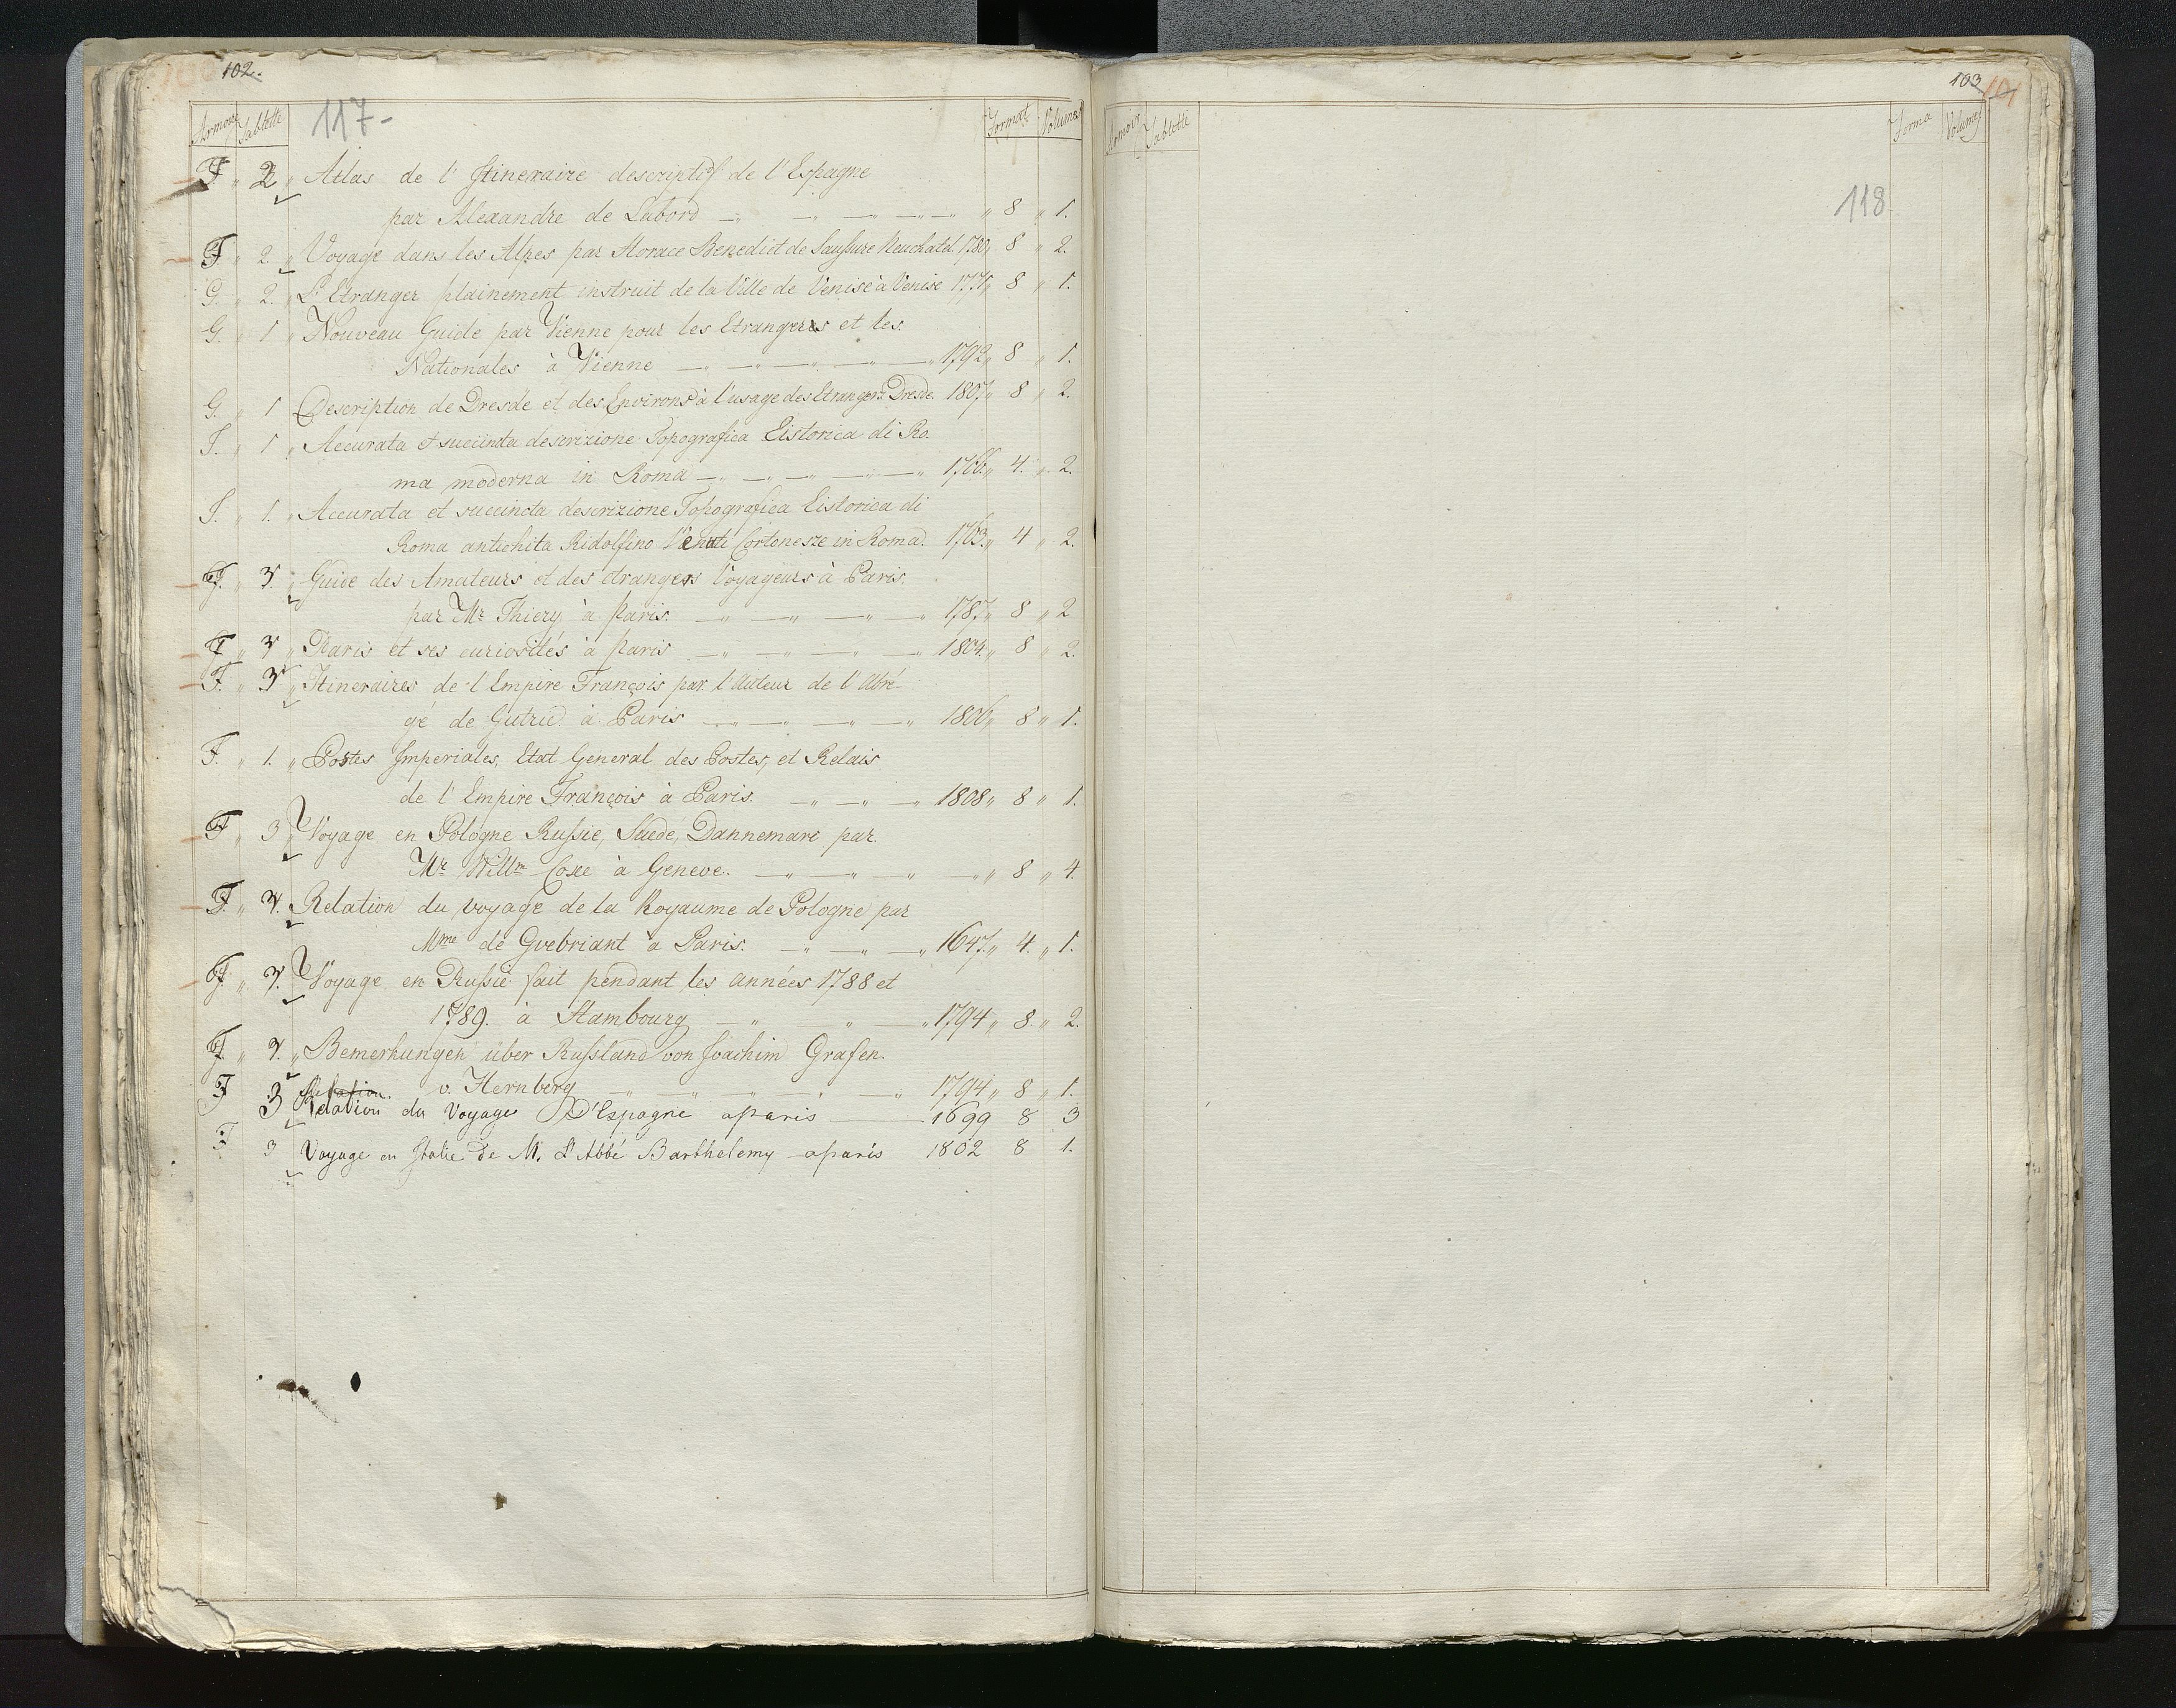 102.
117-
Armoir Tablette Format Volumes
F. " 2 " Atlas de l'Itineraire descriptif de l'Espagne
par Alexandre de Labord " 8 " 1.
F " 2. " Voyage dans les Alpes par Horace Benedict de Saussure Neuchatel. 1780 " 8 " 2.
G. " 2. " L'Etranger plainement instruit de la Ville de Venise à Venise 1771 " 8 " 1.
G. " 1 " Nouveau Guide par Vienne pour les Etrangers et les
Nationales à Vienne 1792 " 8 " 1.
G. " 1 Description de Dresde et des Environs à l'usage des Etrangers Dresde. 1807 " 8 " 2.
I. " 1 " Accurata et succinta descrizione Topografica Eistorica di Ro.
ma moderna in Roma 1766. " 4. " 2.
I. " 1. " Accurata et succincta descrizione Topografica Eistorica di
Roma antichita Ridolfino Venuti Cortonesze in Roma. 1763. " 4 " 2.
F. " 3. " Guide des Amateurs et des etrangers Voyageurs à Paris.
par Mr Thiery à Paris. 1787. " 8 " 2
F " 3 " Paris et ses curiosités à Paris 1804. " 8 " 2.
F. " 3 " Itineraires de l'Empire François par l'Auteur de l'Abré-
gé de Gutrie. à Paris 1806 " 8 " 1.
F. " 1. " Postes Imperiales, Etat General des Postes, et Relais
de l'Empire François à Paris. 1808 " 8 " 1.
F " 3 " Voyage en Pologne Russie, Suede, Dannemarc par
Mr Willm Coxe à Geneve. " 8 " 4.
F. " 3. Relation du voyage de la Royaume de Pologne par
Mme de Gvebriant a Paris. 1647. " 4. " 1.
F " 3. Voyage en Russie fait pendant les années 1788 et
1789. à Hambourg 1794 " 8. " 2.
F. " 3. " Bemerkungen über Russland von Joachim Grafen.
v. Hernberg 1794 " 8 " 1.
F 3 Relation. Relation du Voyage D'Espagne a paris 1699 8 3
F 3 Voyage en Italie de M. L'Abbé Barthelemy a paris 1802 8 1.
103
101
Armoir Tablette Forma Volumes
118